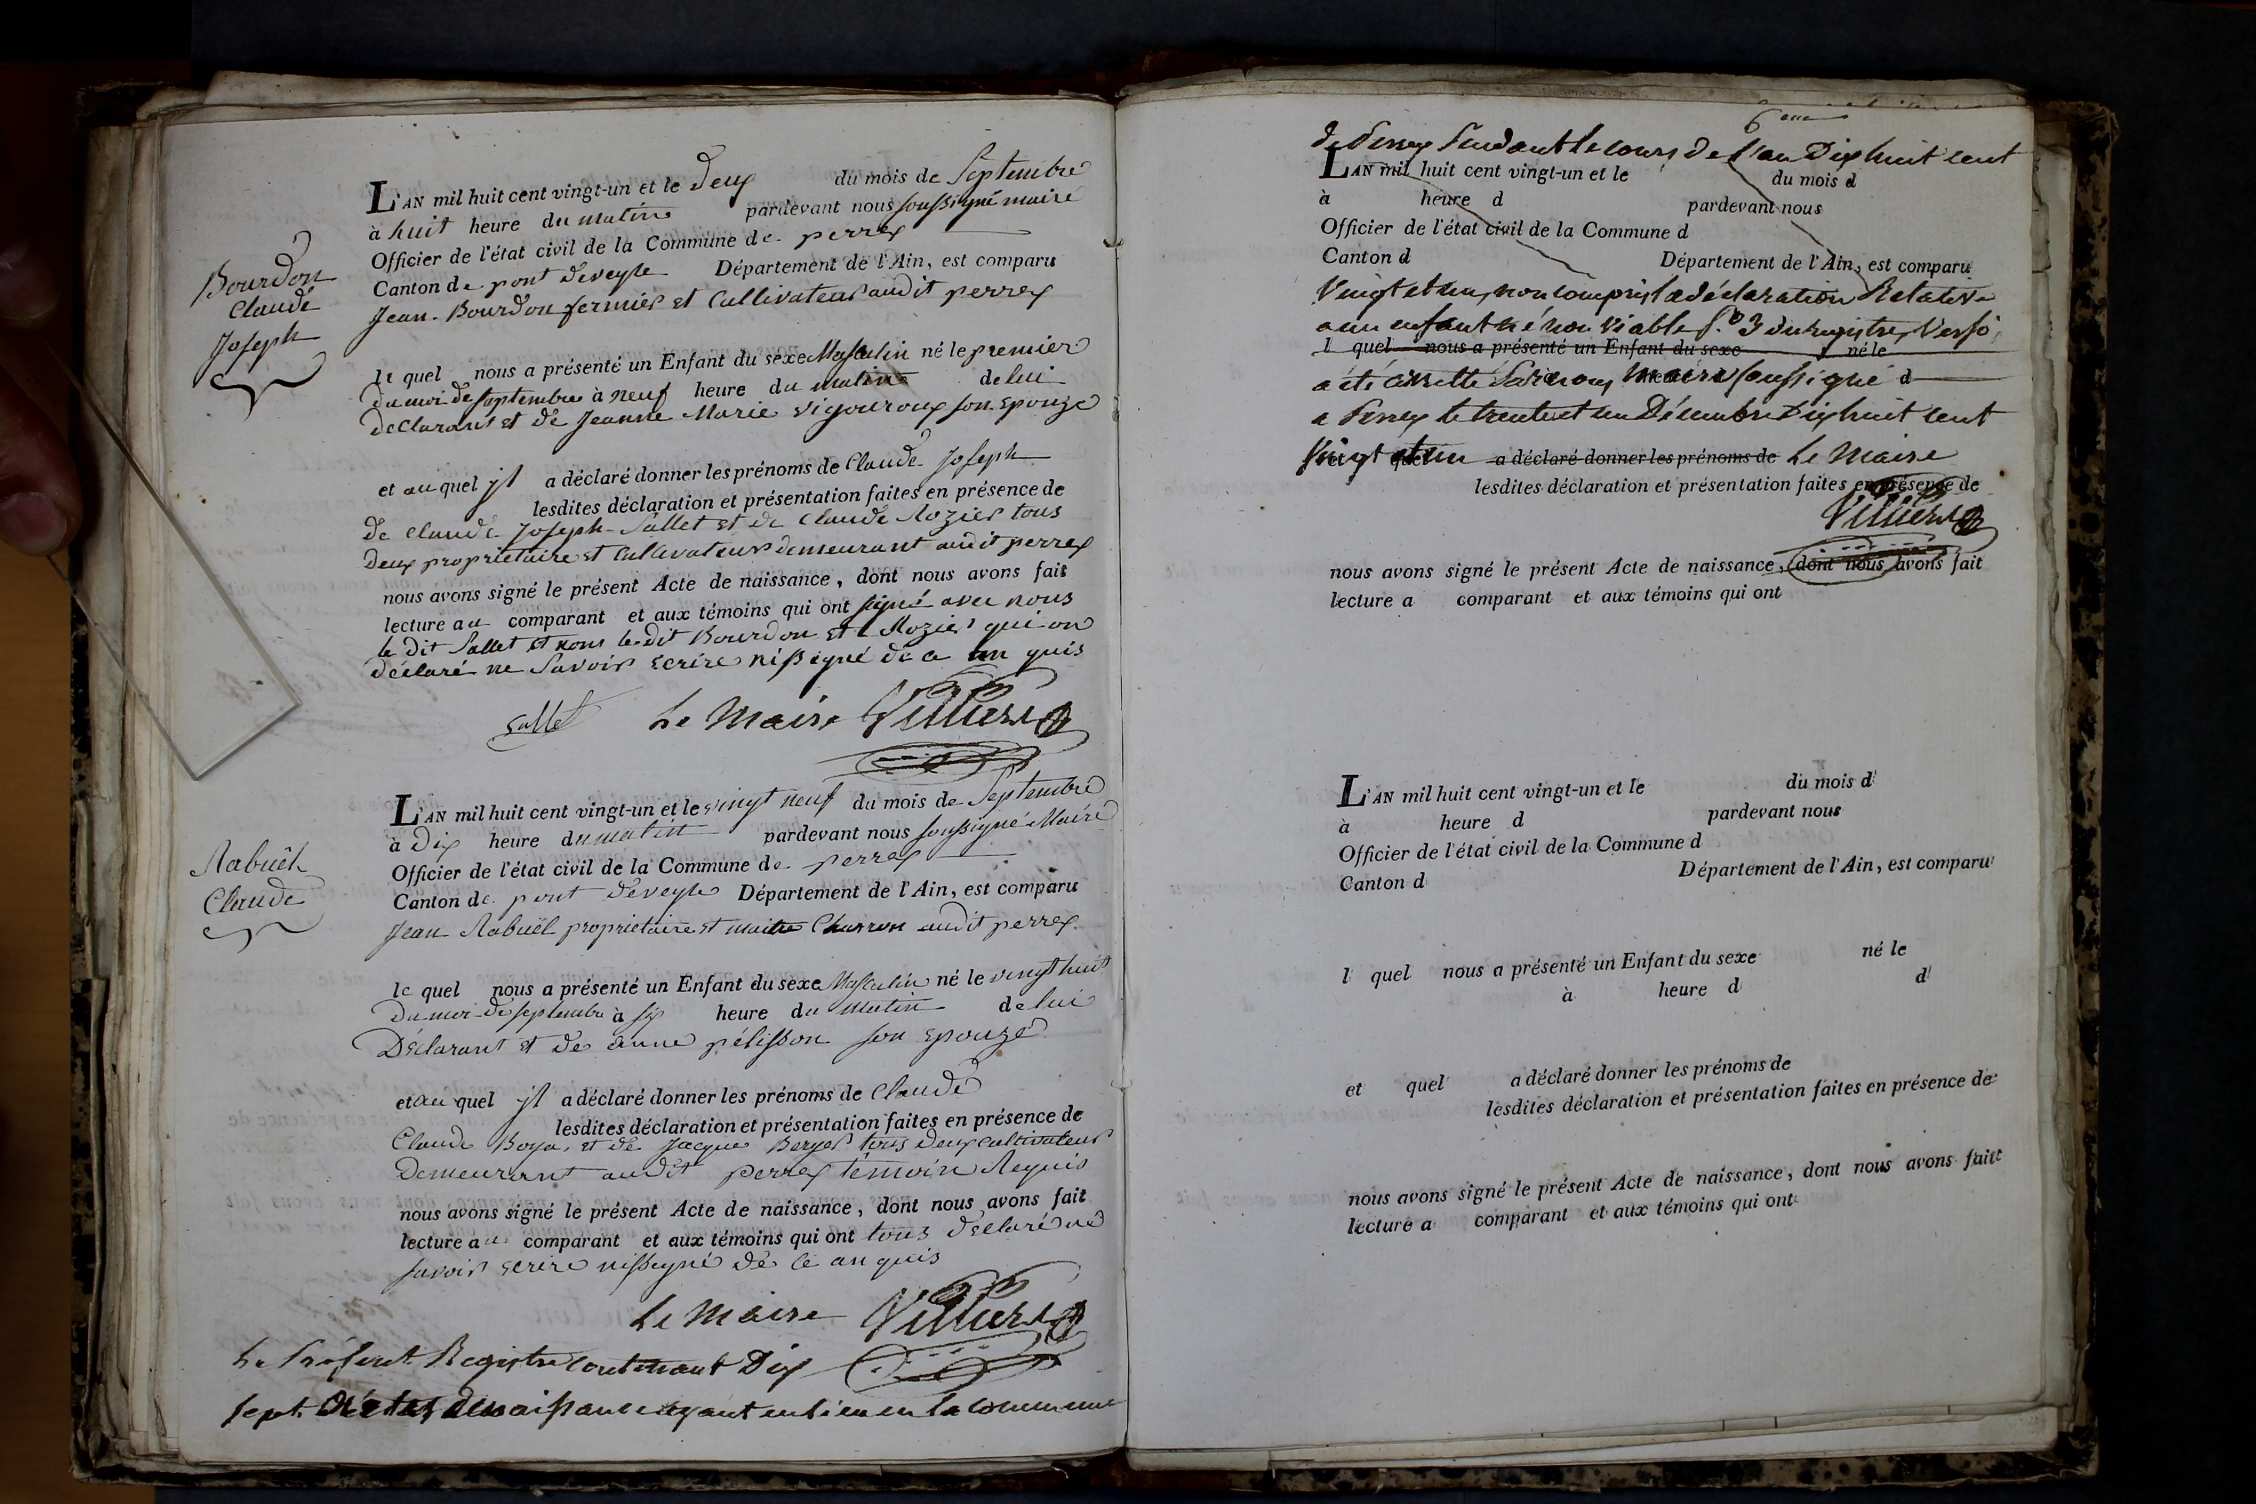 Bourdon
Claude
Joseph
L'AN mil huit cent vingt-un et le deux du mois de Septembre
à huit heure du matin pardevant nous soussigné maire
Officier de l'état civil de la Commune de perrex
Canton de pont deveyle Département de l'Ain, est comparu
Jean Bourdon fermier et Cultivateur audit perrex
le quel nous a présenté un Enfant du sexe Masculin né le premier
du moi de septembre à neuf heure du matin de lui
declarant et de Jeanne Marie Vigouroux son Epouze
et au quel jl a déclaré donner les prénoms de Claude Joseph
lesdites déclaration et présentation faites en présence de
de Claude Joseph Sallet et de Claude Rozier tous
deux proprietaire et Cultivateur demeurant audit perrex
nous avons signé le présent Acte de naissance, dont nous avons fait
lecture au comparant et aux témoins qui ont signé avec nous
le dit Sallet et nous ledit Bourdon et Rozier qui on
déclaré ne Savoir écrire nissigné de ce an quis
Sallet Le Maire Villiers
Rabuël
Claude
L'AN mil huit cent vingt-un et le vingt neuf du mois de Septembre
à Dix heure du matin pardevant nous soussigné Maire
Officier de l'état civil de la Commune de perrex
Canton de pont deveyle Département de l'Ain, est comparu
Jean Rabuël proprietaire et maitre Charron audit perrex
le quel nous a présenté un Enfant du sexe Masculin né le vingt huit
du moi de septembre à six heure du matin de lui
Déclarant et de anne pélisson son Epouze
et au quel jl a déclaré donner les prénoms de Claude
lesdites déclaration et présentation faites en présence de
Claude Boya et de Jacque Berger tous deux cultivateur
Demeurant audit perrex témoin Requis
nous avons signé le présent Acte de naissance, dont nous avons fait
lecture au comparant et aux témoins qui ont tous déclaré ne
savoir écrire nissigné de ce an quis
Le Maire Villiers
Le Présent Registre contenant Dix
sept actes de naissance ayant eu lieu en la commune
6eme
de Perrex Pendant le cours de l'an Dix huit cent
L'AN mil huit cent vingt-un et le du mois d
à heure d pardevant nous
Officier de l'état civil de la Commune d
Canton d Département de l'Ain, est comparu
Vingt et un, non compris la déclaration Relative
a un enfant né non viable f.o 3 du registre, Verso,
l quel nous a présenté un Enfant du sexe né le
a été arretté Par nous maire soussigné d
a Perrex le trente et un Décembre Dix huit cent
Vingt et un quel a déclaré donner les prénoms de Le Maire
lesdites déclaration et présentation faites en présence de
Villiers
nous avons signé le présent Acte de naissance, dont nous avons fait
lecture a comparant et aux témoins qui ont
L'AN mil huit cent vingt-un et le du mois d
à heure d pardevant nous
Officier de l'état civil de la Commune d
Canton d Département de l'Ain, est comparu
l quel nous a présenté un Enfant du sexe né le
à heure d d
et quel a déclaré donner les prénoms de
lesdites déclaration et présentation faites en présence de
nous avons signé le présent Acte de naissance, dont nous avons fait
lecture a comparant et aux témoins qui ont